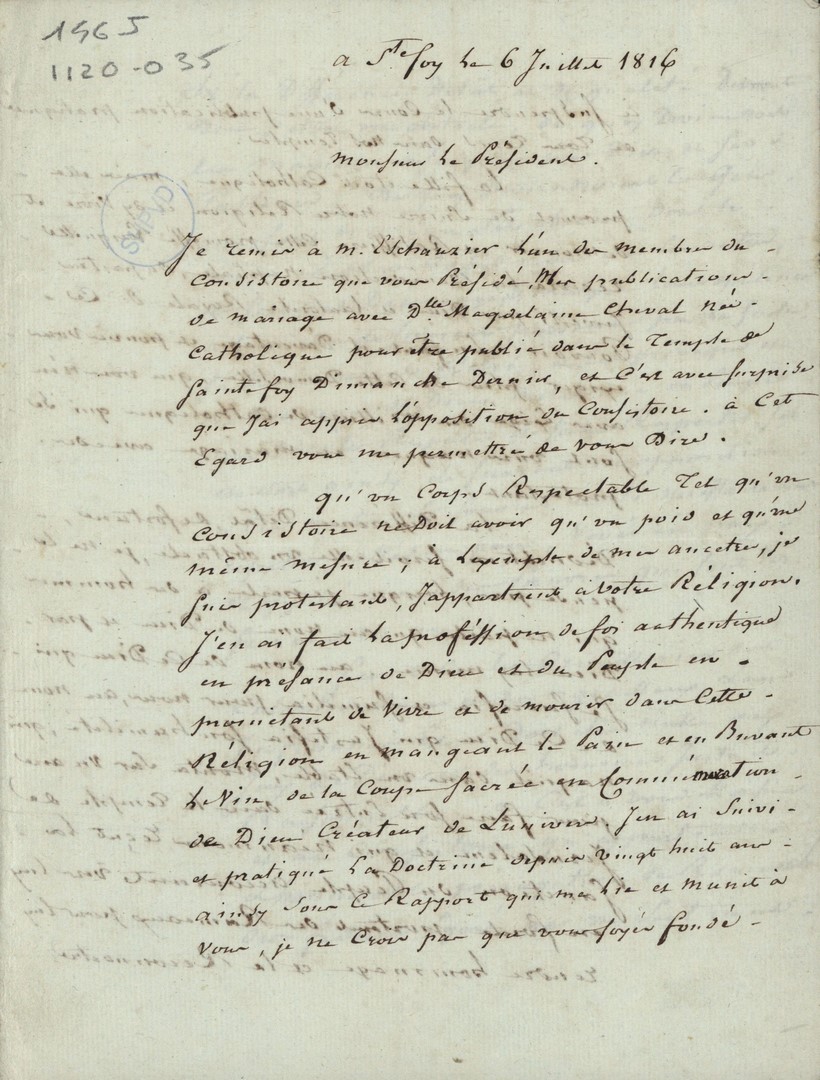 1465
1120-035
a Ste foy Le 6 Juillet 1816
Monsieur Le Président.
SHPVD
Je remis à m. Eschauzier L'un des membres du -
Consistoire que vous Présidé, Mes publications -
de mariage avec Dlle Magdelaine Cheval Né -
Catholique pour être publié dans le Temple de
Sainte foy Dimanche Dernier, et C'est avec Surprise
que J'ai appris L'opposition du Consistoire. à Cet
Egard vous me permettré de vous Dire.
qu'un Corps Respectable Tel qu'un
Consistoire ne Doit avoir qu'un poid et qu'une
même mesure ; à L'exemple de mes ancetre, je
Suis protestant, J'appartient à votre Réligion.
J'en ai fait La proféssion de foi authentique
en présance de Dieu et du Peuple en -
promettant de Vivre et de mourir dans Cette -
Réligion en mangeant le Pain et en Buvant
Le Vin, de la Coupe Sacrée en Commémoration -
de Dieu Créateur de Lunivers. J'en ai Suivi -
et pratiqué La Doctrine depuis vingt huit ans -
ainsy Sous Ce Rapport qui me Lie et m'unit à
Vous, je ne Crois pas que vous soyés fondé -